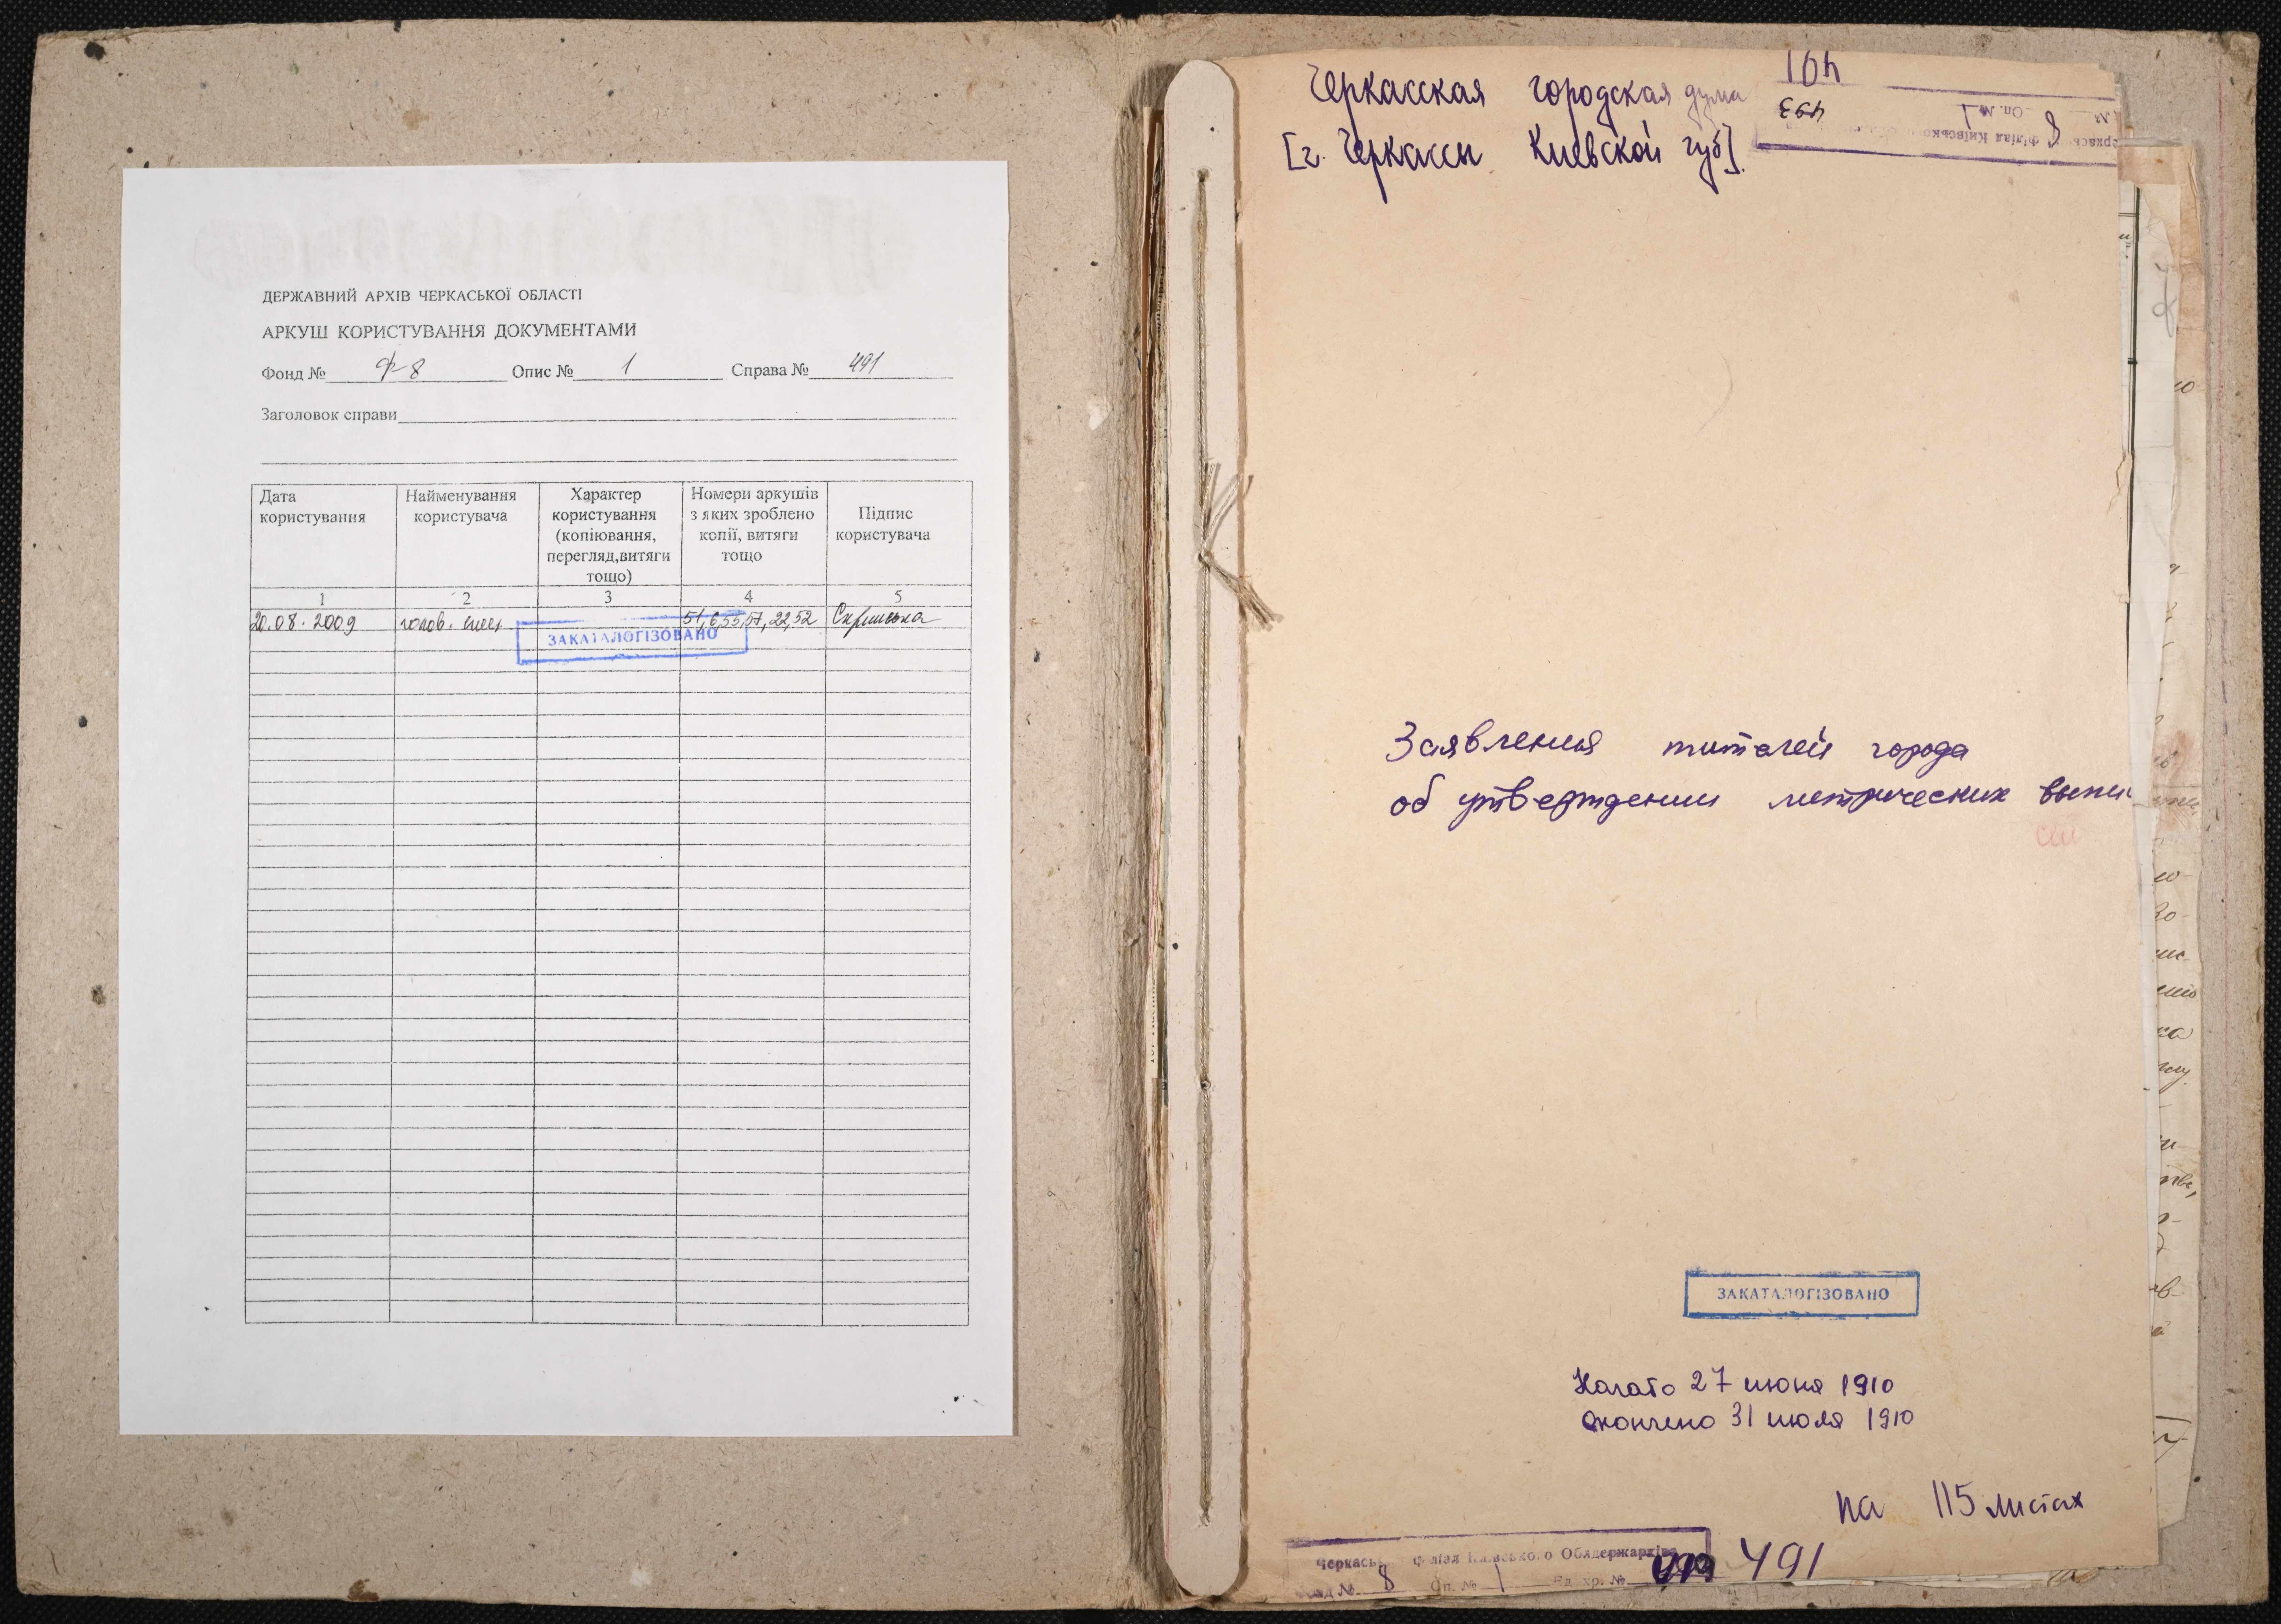 ДЕРЖАВНИЙ АРХІВ ЧЕРКАСЬКОЇ ОБЛАСТІ
АРКУШ КОРИСТУВАННЯ ДОКУМЕНТАМИ
Фонд № Ф-8 Опис № 1 Справа № 491
Заголовок справи
Дата користування
Найменування користувача
Характер користування (копіювання, перегляд,витяги тощо)
Номери аркушів з яких зроблено копії, витяги тощо
Підпис користувача
1 2 3 4 5
20.08.2009 голов. 51,6,55,57,22,52
ЗАКАТАЛОГІЗОВАНО
Черкасская городская дума
[г. Черкассы Киевской губ].
491
493
Філія Київсько
Оп. № 1
8
Заявления жителей города
об утверждении метрических выпи
ЗАКАТАЛОГІЗОВАНО
Начато 27 июня 1910
окончено 31 июля 1910
на 115 листах
Черкась філія Київського Облдержархіва
№ 8 Оп. № 1 Ед. хр. № 491